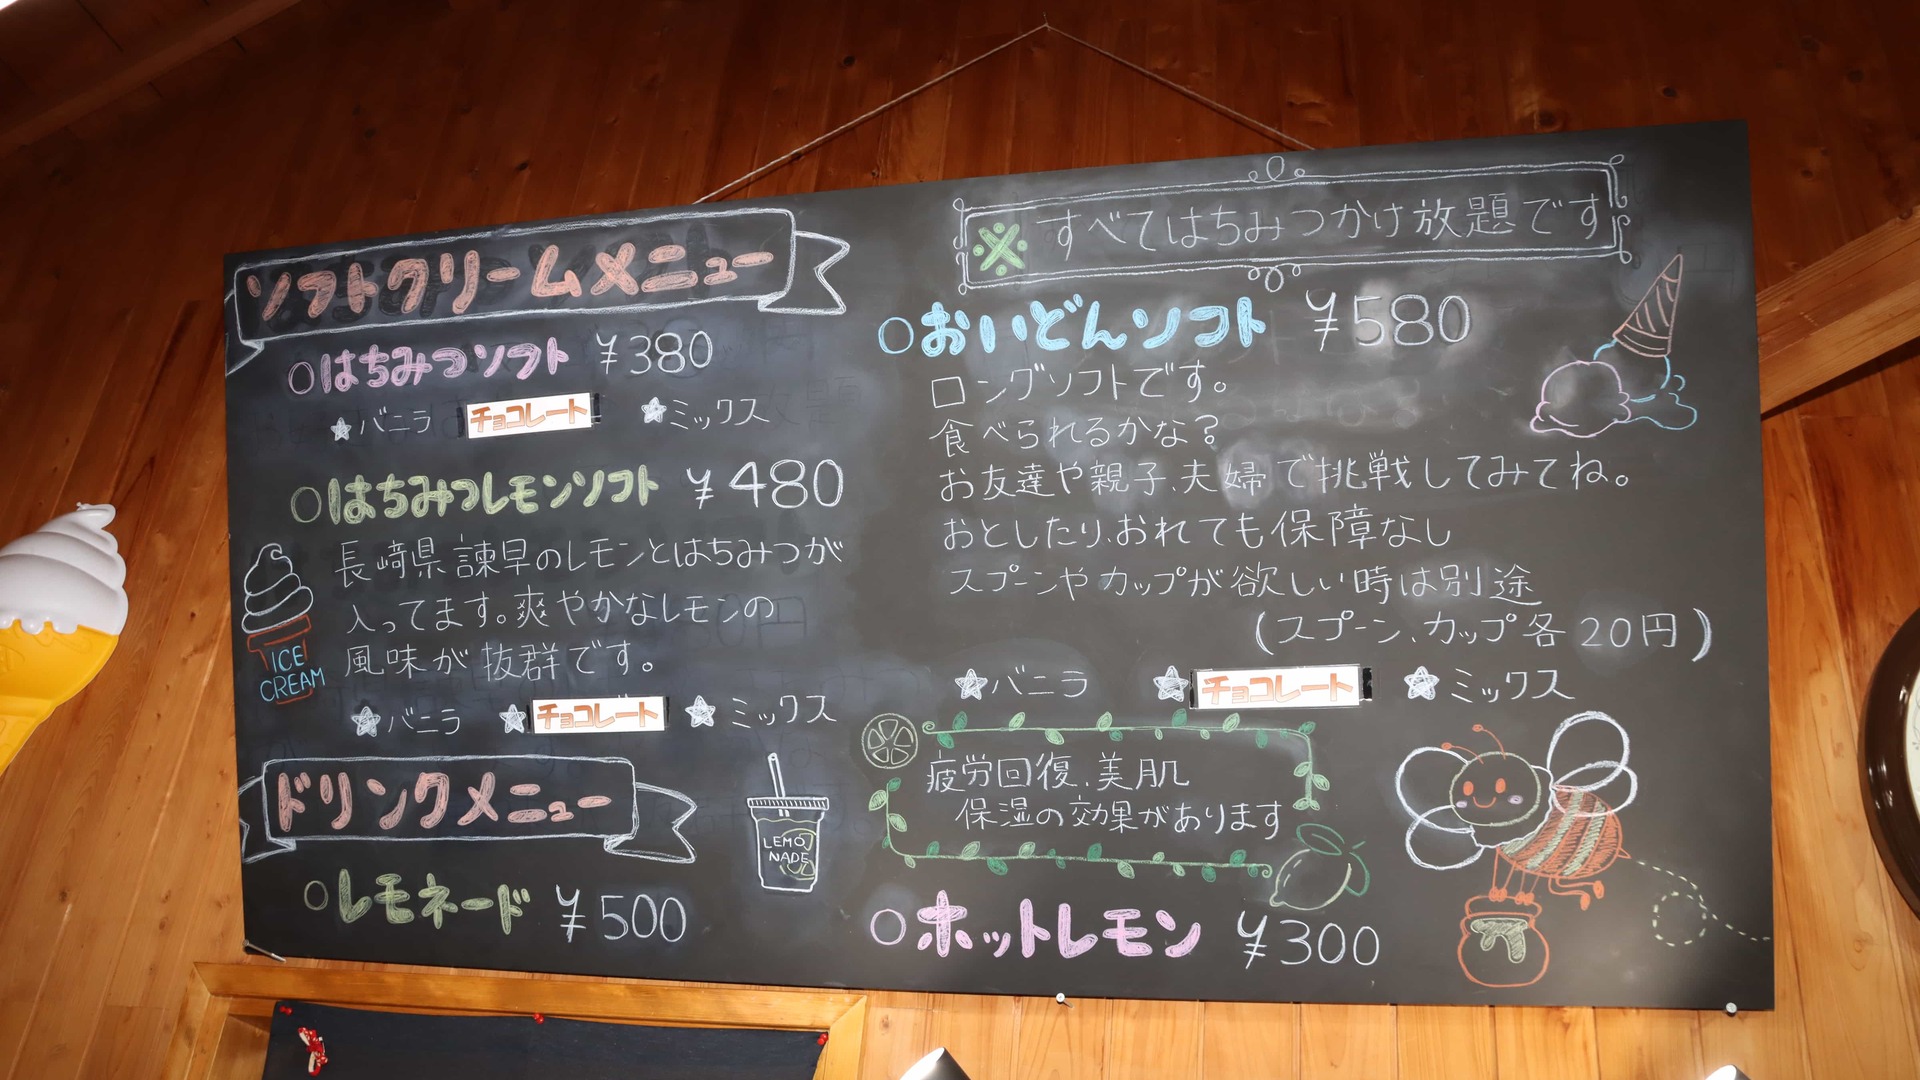 ソフトクリームメニュー
○はちみつソフト ¥380
★バニラ チョコレート ★ミックス
○はちみつレモンソフト ¥480
長崎県諫早のレモンとはちみつが
入ってます。爽やかなレモンの
風味が抜群です。
ICE
CREAM
★バニラ ★チョコレート ★ミックス
ドリンクメニュー
LEMO
NADE
○レモネード ¥500
※すべてはちみつかけ放題です
○おいどんソフト ¥580
ロングソフトです。
食べられるかな?
お友達や親子、夫婦で挑戦してみてね。
おとしたり、おれても保障なし
スプーンやカップが欲しい時は別途
(スプーン、カップ各20円)
★バニラ ★チョコレート ★ミックス
疲労回復、美肌
保湿の効果があります
○ホットレモン ¥300